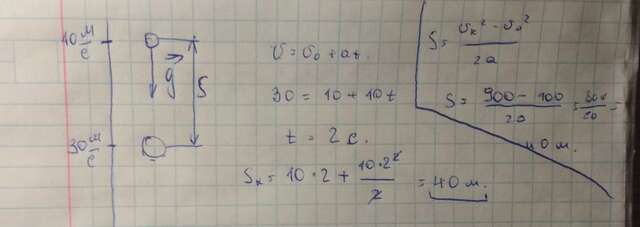 10 м/с
g
S
30 м/с
υ = υ₀ + at.
30 = 10 + 10t
t = 2 с.
Sₓ = 10 · 2 + 10 · 2²/2 = 40 м.
S = υₖ² - υ₀²/2a
S = 900 - 100/20 = 800/20 =
40 м.